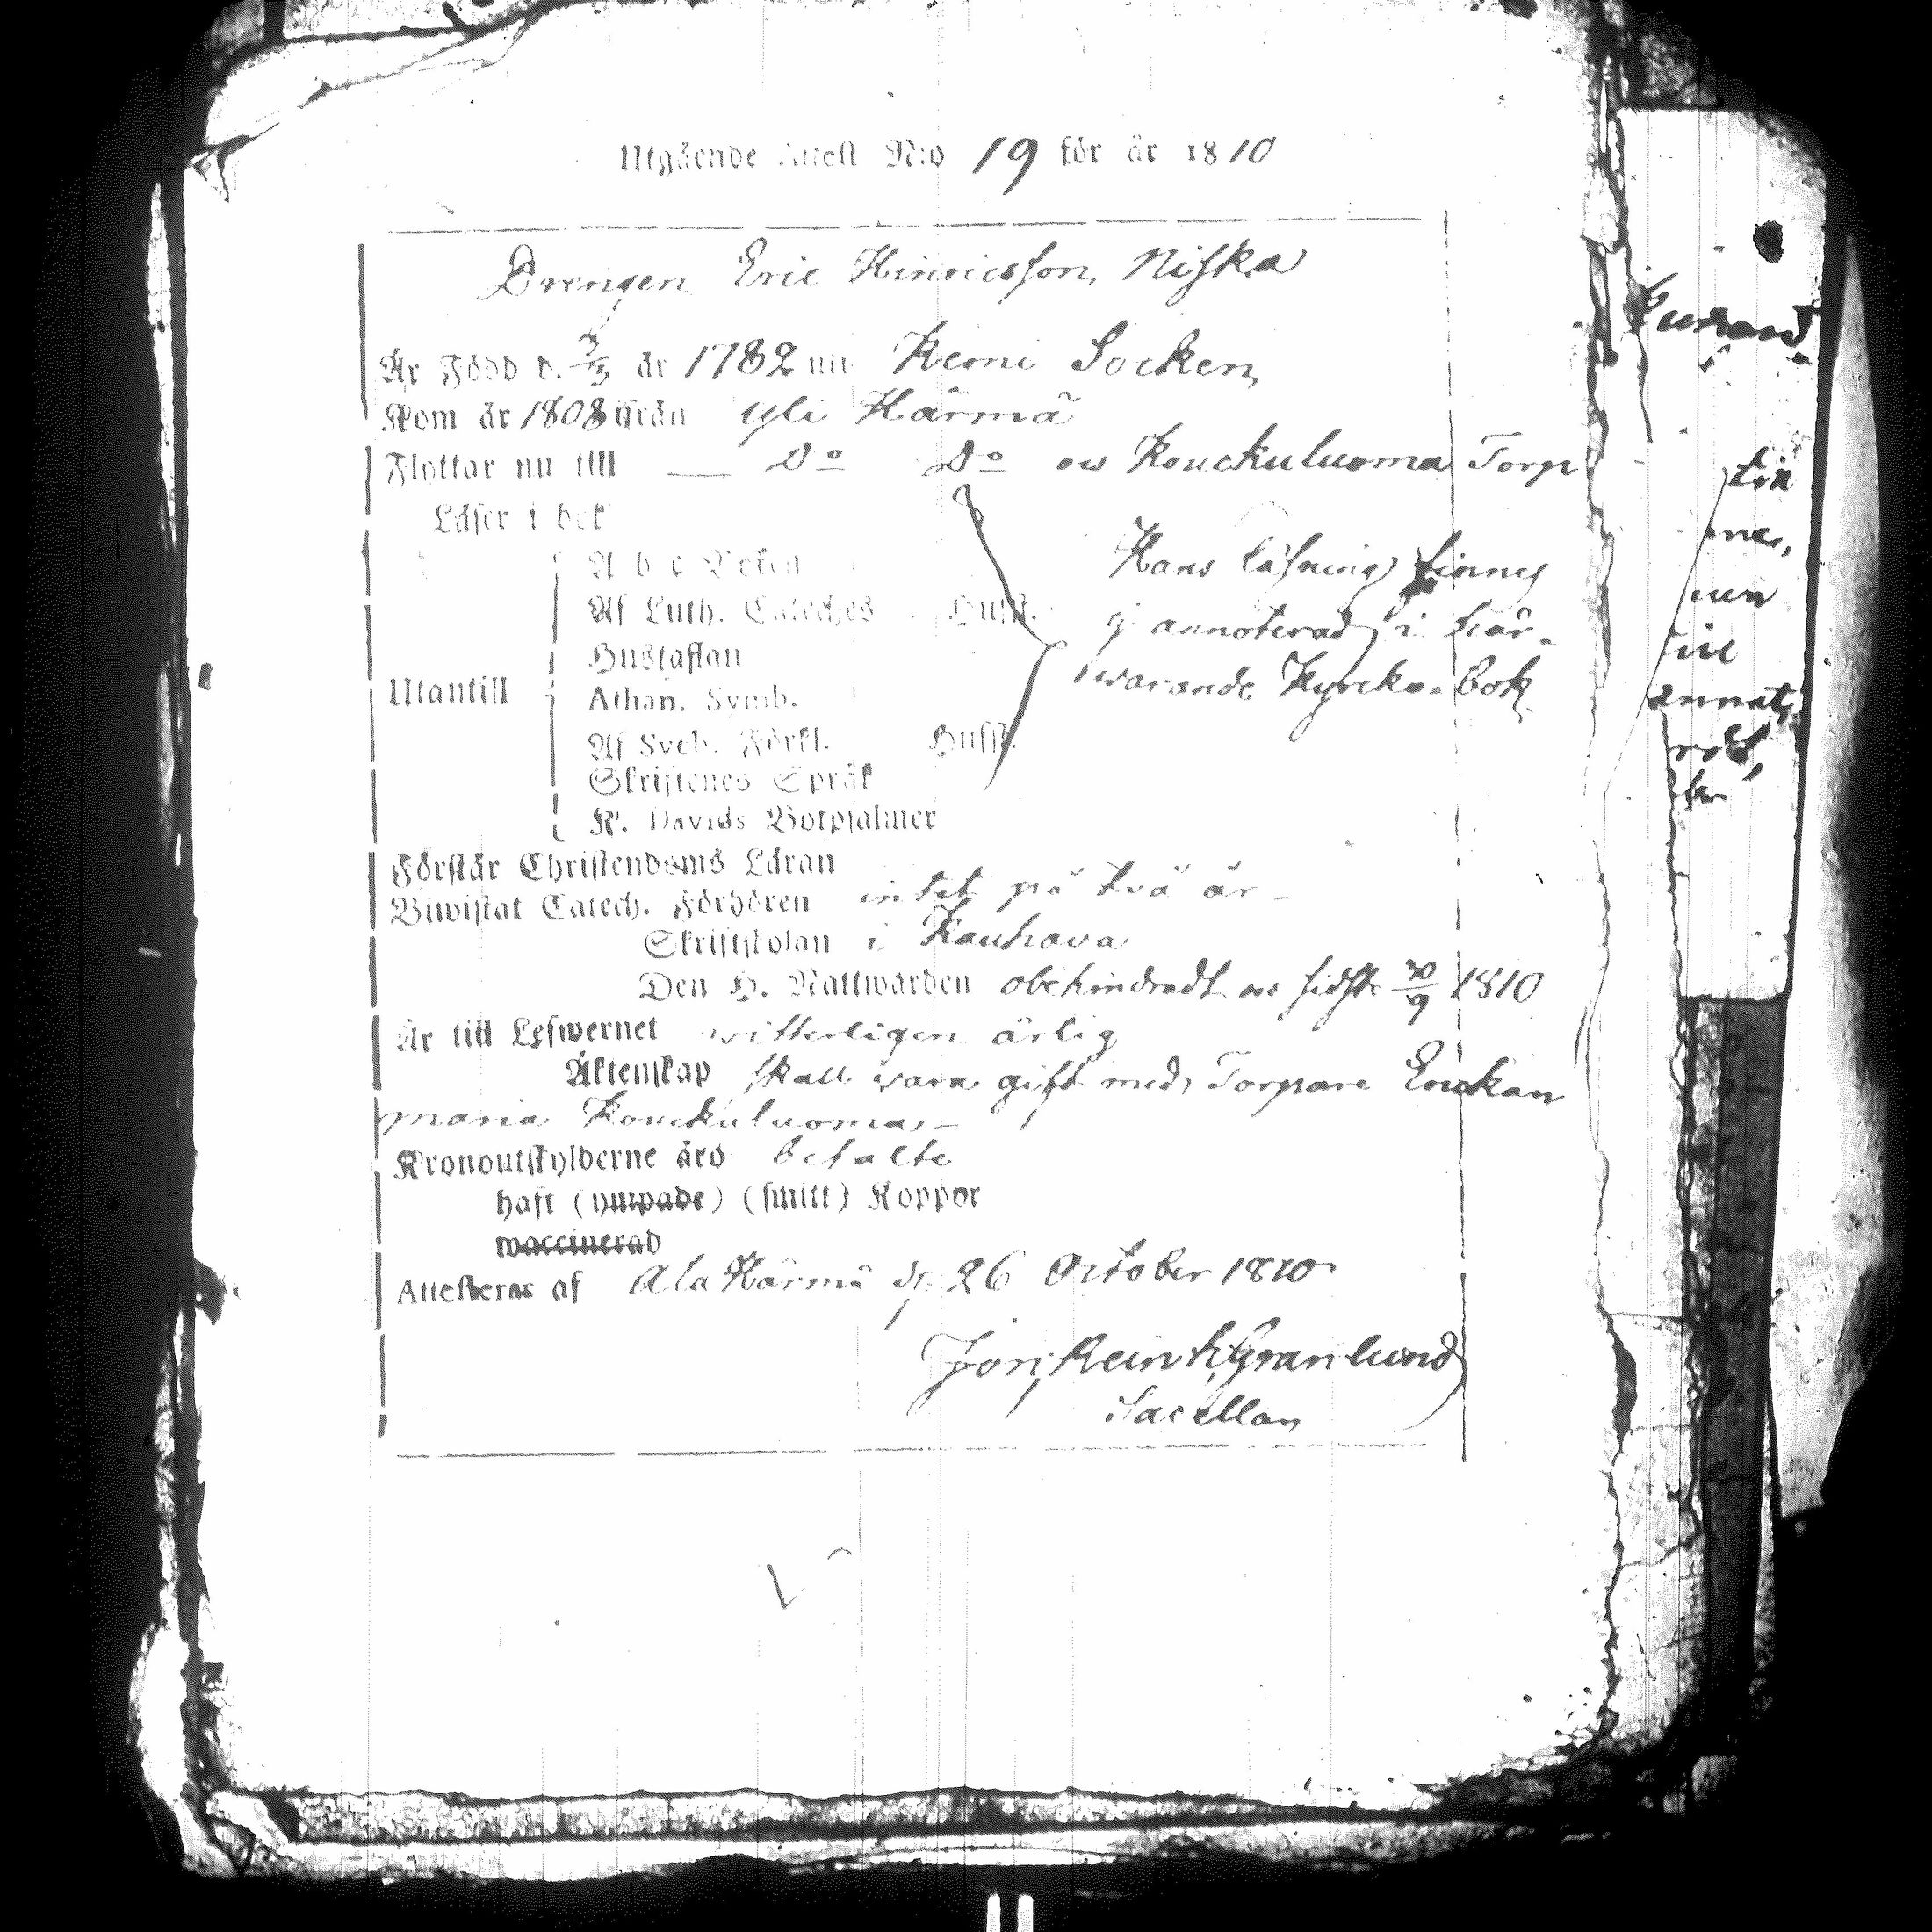 Utgående Attest N:o 19 för år 1810
Drengen Eric Hinricsson Niska
Är Född d. 3/3 år 1782 uti Kemi Socken
Kom år 1808 ifrån Yli Härmä
Flyttar nu till — Do Do os Kouckuluoma Torp
Läser i bok
A b c Boken
Hans läsning finnes
Af Luth. Cateches Hufst.
ej annoterad i här-
Hustaflan
warande Kyrcko-bok
Utantill
Athan. Symb.
Af Sveb. Förkl. Hufst.
Skriftenes Språk
K. Davids Botpsalmer
Förstår Christendoms Läran
Biwistat Catech. Förhören intet på två år -
Skriftskolan i Kauhava
Den H. Nattwarden obehindradt sidst 30/9 1810
Är till Lefwernet witterligen ärlig
Äktenskap skall wara gift med Torpare Enckan
Maria Kouckuluoma -
Kronoutskylderne äro betalte
haft (ympade) (smitt) Koppor
waccinerad
Attesteras af Ala Härmä d. 26 October 1810
Joh. Reinh. Granlund
Sacellan